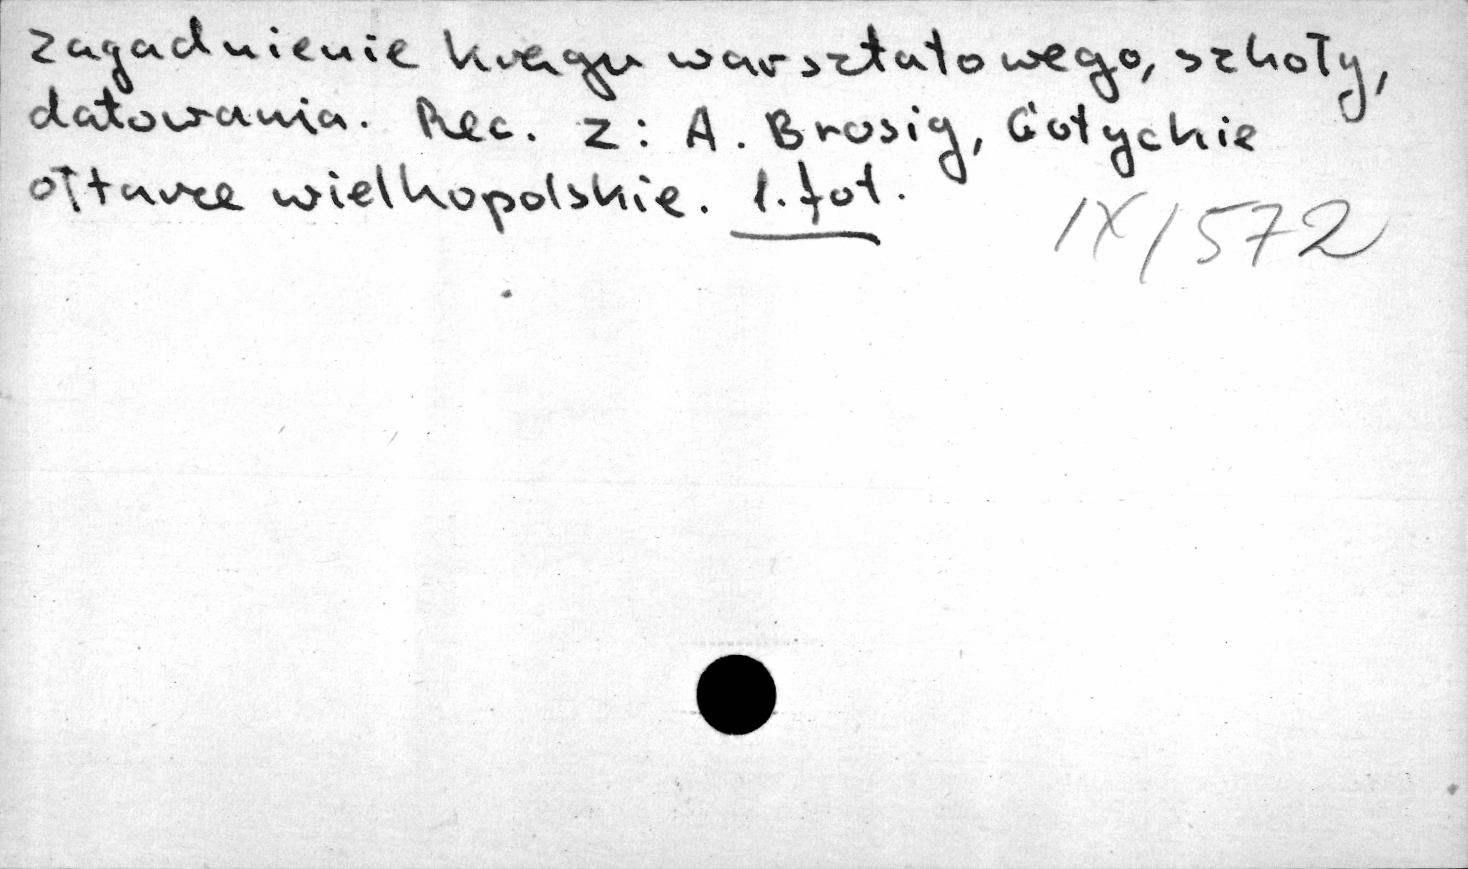 zagadnienie kręgu warsztatowego, szkoły,
datowania. Rec. z: A. Brosig, Gotyckie
ołtarze wielkopolskie. 1. fot.
IX/572